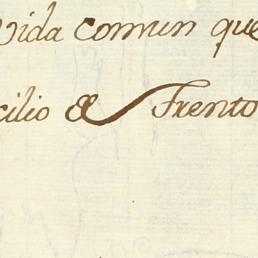 Vida comun que
cilio de Trento